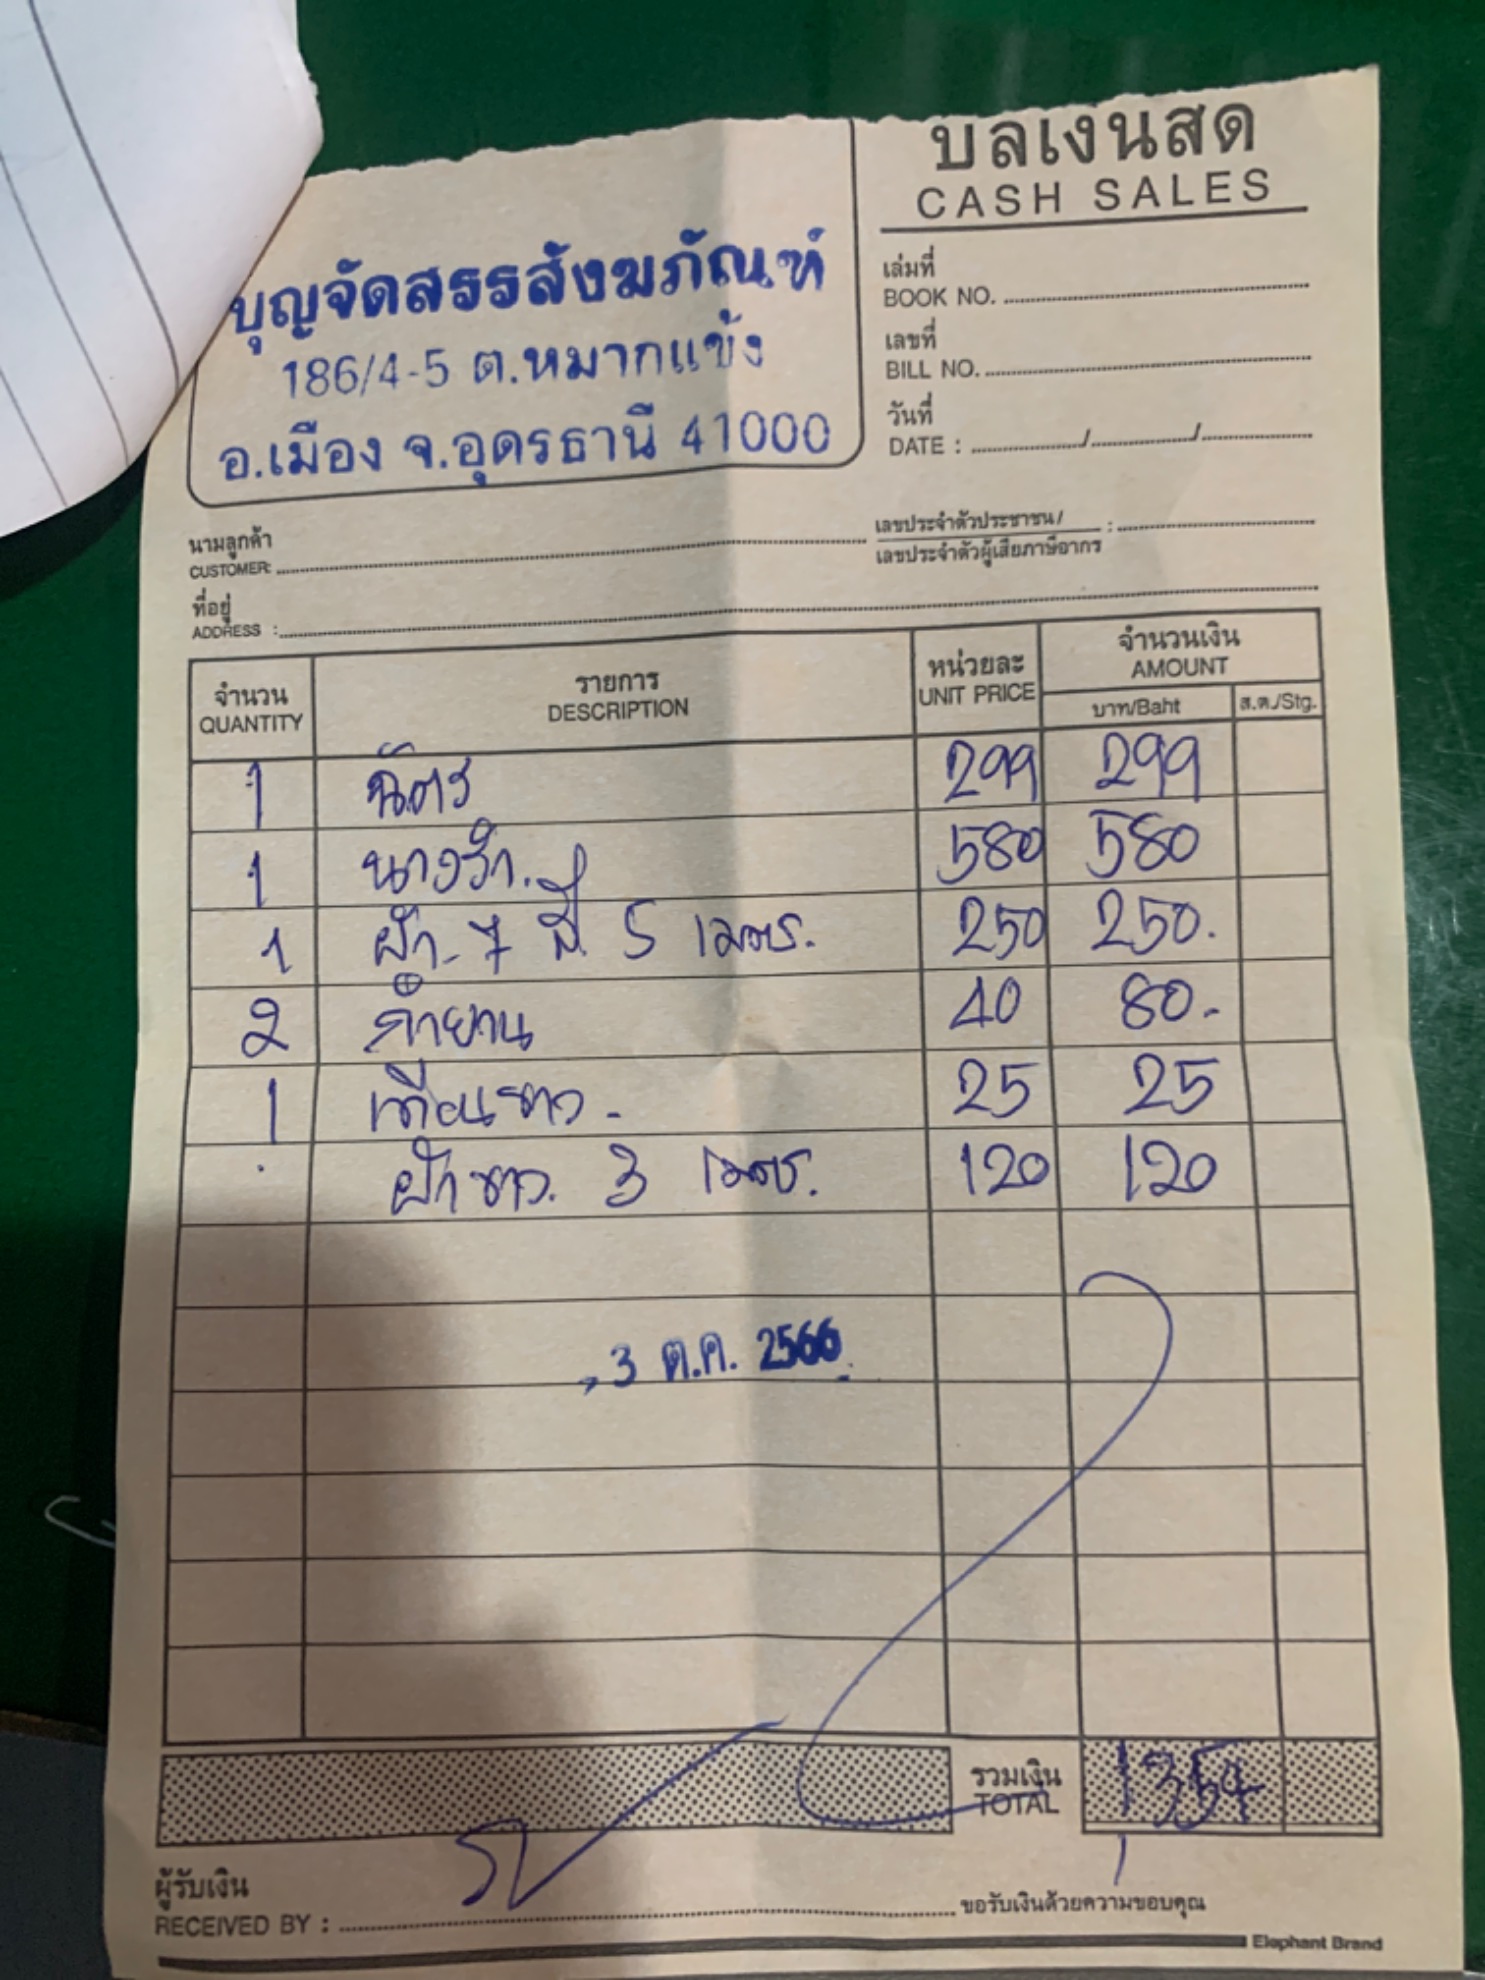 บิลเงินสด
CASH SALES
บุญจัดสรรสังฆภัณฑ์
186/4-5 ต.หมากแข้ง
อ.เมือง จ.อุดรธานี 41000
เล่มที่
BOOK NO.
เลขที่
BILL NO.
วันที่
DATE : / /
นามลูกค้า
CUSTOMER:
เลขประจำตัวประชาชน/
เลขประจำตัวผู้เสียภาษีอากร :
ที่อยู่
ADDRESS :
จำนวน
QUANTITY
รายการ
DESCRIPTION
หน่วยละ
UNIT PRICE
จำนวนเงิน
AMOUNT
บาท/Baht ส.ต./Stg.
1 ฉัตร 299 299
1 นางรำ. 580 580
1 ผ้า-7 สี 5 เมตร. 250 250.
2 กำยาน 40 80.-
1 เทียนขาว - 25 25
ผ้าขาว. 3 เมตร. 120 120
3 ต.ค. 2566
รวมเงิน
TOTAL
1354
ผู้รับเงิน
RECEIVED BY :
ขอรับเงินด้วยความขอบคุณ
Elephant Brand